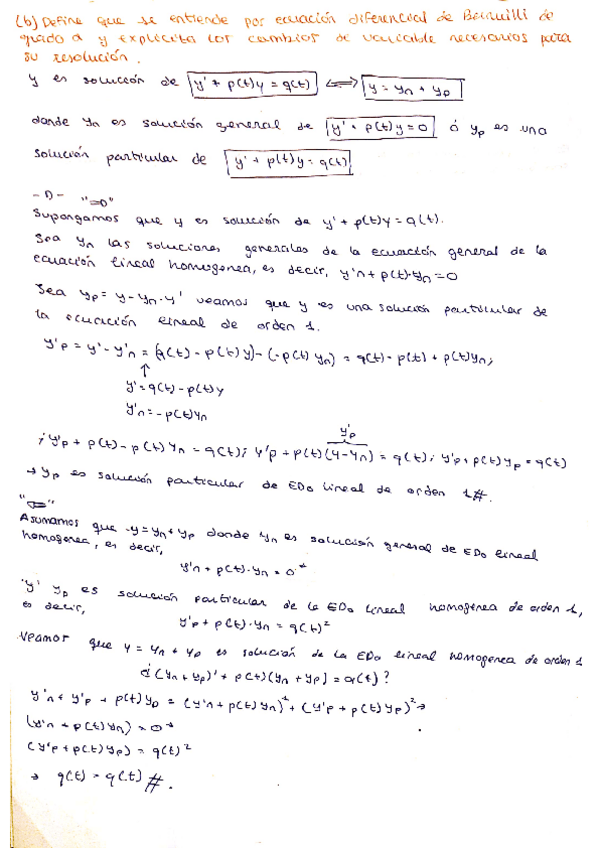 (b) Define que se entiende por ecuación diferencial de Bernuilli de
grado α y explicita los cambios de variable necesarios para
su resolución.
y es solución de y' + p(t)y = q(t) ⟺ y = yn + yp
donde yn es solución general de y' + p(t)y = 0 ó yp es una
solución particular de y' + p(t)y = q(t)
-D- "⇒"
Supongamos que y es solución de y' + p(t)y = q(t).
Sea yn las soluciones generales de la ecuación general de la
ecuación lineal homogenea, es decir, y'n + p(t)·yn = 0
Sea yp = y - yn · y' veamos que y es una solución particular de
la ecuación lineal de orden 1.
y'p = y' - y'n = (q(t) - p(t)y) - (-p(t) yn) = q(t) - p(t) + p(t)yn;
↑
y' = q(t) - p(t)y
y'n = -p(t)yn
; y'p + p(t) - p(t) yn = q(t); y'p + p(t)(y-yn) = q(t); y'p + p(t)yp = q(t)
y'p
→ yp es solución particular de EDO lineal de orden 1#.
"⇐"
Asumamos que y = yn + yp donde yn es solución general de EDO lineal
homogenea, es decir,
y'n + p(t)·yn = 0 *
"y" yp es solución particular de la EDO lineal homogenea de orden 1,
es decir,
y'p + p(t)·yn = q(t)²
Veamos que y = yn + yp es solución de la EDO lineal homogenea de orden 1
¿(yn + yp)' + p(t)(yn + yp) = q(t)?
y'n + y'p + p(t)yp = (y'n + p(t)yn)¹ + (y'p + p(t)yp)² →
(y'n + p(t)yn) = 0 *
(y'p + p(t)yp) = q(t)²
→ q(t) = q(t) #.